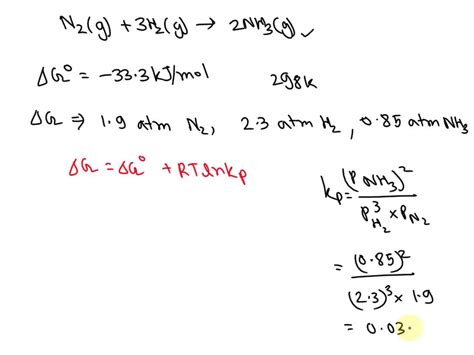 N₂(g) + 3H₂(g) → 2NH₃(g) ✓
ΔG° = -33.3 kJ/mol 298k
ΔG ⇒ 1.9 atm N₂, 2.3 atm H₂, 0.85 atm NH₃
ΔG = ΔG° + RT ln kp
kp = (P NH₃)² / P³H₂ × PN₂
= (0.85)² / (2.3)³ × 1.9
= 0.03.